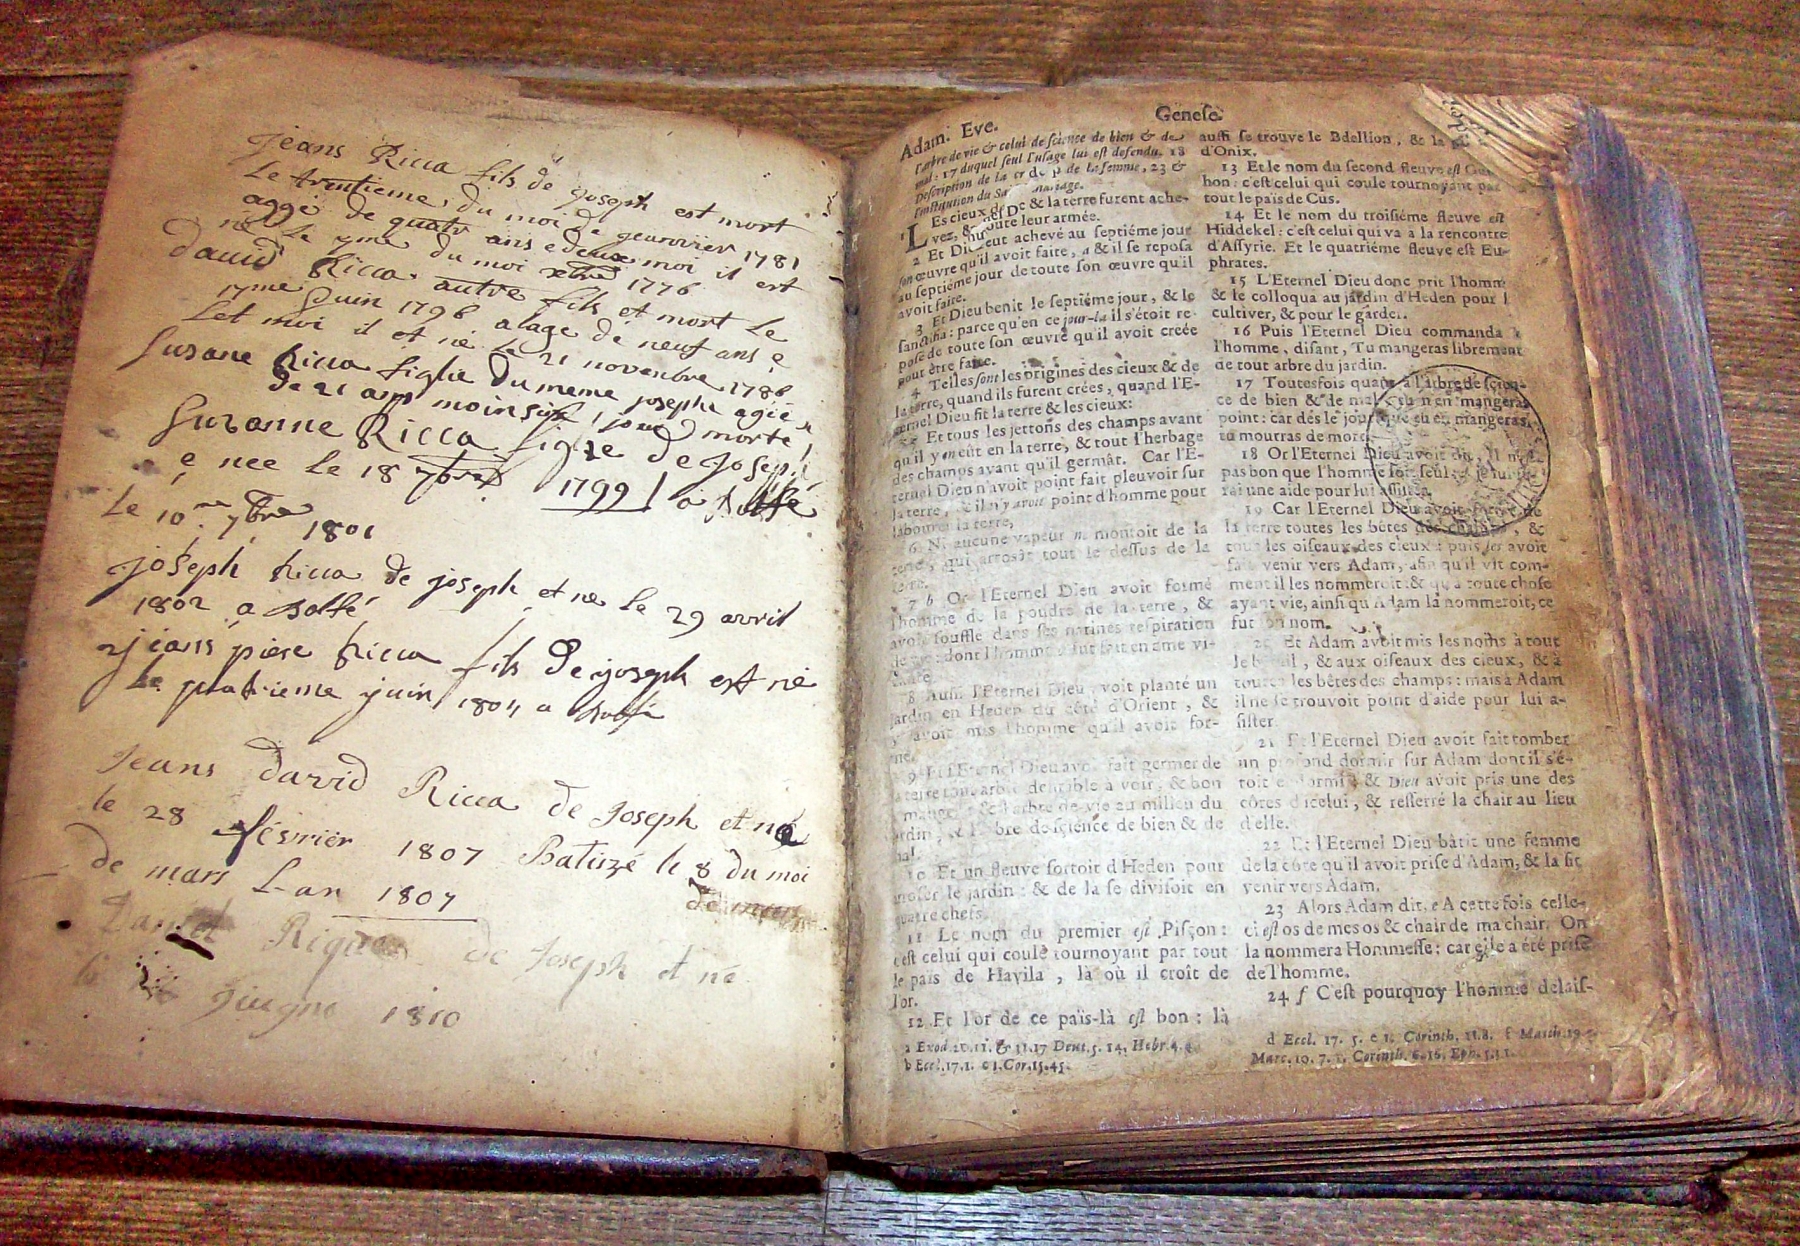 Jeans Ricca fils de Joseph est mort
Le trentieme du moi de geanvier 1781
aggé de quatr ans e deux moi il est
né Le yme du moi xbre 1776
David Ricca autre fils et mort Le
17me Juin 1796 a lage de neuf ans e
set moi il et né le 21 novenbre 1786
Susane Ricca figlie du meme josephe agée
de 21 ans moins six jour morte
Suzanne Ricca figlie de Joseph
e nee le 18 7bre 1799 a
Le 10me 7bre 1801
joseph Ricca de joseph et ne le 29 avril
1802 a
jeans piere Ricca fils de joseph est né
Le juin 1804 a
Jeans david Ricca de Joseph et né
le 28 février 1807 Batizé le 8 du moi
de mars L-an 1807 de mars
Daniel de Joseph et né
le Giugno 1810
Adam. Eve.
Geneſe.
l'arbre de vie & celui de ſcience de bien & de
mal: 17 duquel seul l'uſage lui eſt defendu. 18
Deſcription de la de la femme, 23 &
l'inſtitution du mariage.
LEs cieux & la terre furent ache-
vez, & toute leur armée.
2 Et Dieu eut achevé au ſeptiéme jour
ſon œuvre qu'il avoit faite, a & il ſe repoſa
au ſeptiéme jour de toute ſon œuvre qu'il
avoit faite.
3 Et Dieu benit le ſeptiéme jour, & le
ſanctifia: parce qu'en ce jour-là il s'étoit re-
poſé de toute ſon œuvre qu'il avoit creée
pour être faite.
4 Telles ſont les origines des cieux & de
la terre, quand ils furent crées, quand l'E-
ternel Dieu fit la terre & les cieux:
5 Et tous les jettons des champs avant
qu'il y en eût en la terre, & tout l'herbage
des champs avant qu'il germât. Car l'E-
ternel Dieu n'avoit point fait pleuvoir ſur
la terre, & il n'y avoit point d'homme pour
labourer la terre,
6 Ni aucune vapeur ne montoit de la
terre, qui arrosât tout le deſſus de la
terre.
7 b Or l'Eternel Dieu avoit formé
l'homme de la poudre de la terre, &
avoit ſouffle dans ſes narines reſpiration
de vie: dont l'homme fut fait en ame vi-
vante.
8 Auſſi l'Eternel Dieu avoit planté un
jardin en Heden du côté d'Orient, &
y avoit mis l'homme qu'il avoit for-
mé.
9 Et l'Eternel Dieu avoit fait germer de
la terre tout arbre deſirable à voir, & bon
à manger, & l'arbre de vie au milieu du
jardin, & l'arbre de ſcience de bien & de
mal.
10 Et un fleuve ſortoit d'Heden pour
arroſer le jardin: & de là ſe diviſoit en
quatre chefs.
11 Le nom du premier eſt Piſçon:
c'eſt celui qui coule tournoyant par tout
le païs de Havila, là où il croît de
l'or.
12 Et l'or de ce païs-là eſt bon: là
a Exod. 20.11. & 31.17 Deut. 5. 14. Hebr. 4. 4.
b Eccl. 17.1. c 1. Cor. 15.45.
auſſi ſe trouve le Bdellion, & la
d'Onix.
13 Et le nom du ſecond fleuve eſt Gui-
hon: c'eſt celui qui coule tournoyant par
tout le païs de Cus.
14 Et le nom du troiſiéme fleuve eſt
Hiddekel: c'eſt celui qui va à la rencontre
d'Aſſyrie. Et le quatriéme fleuve eſt Eu-
phrates.
15 L'Eternel Dieu donc prit l'homme
& le colloqua au jardin d'Heden pour l
cultiver, & pour le garder.
16 Puis l'Eternel Dieu commanda à
l'homme, diſant, Tu mangeras librement
de tout arbre du jardin.
17 Toutesfois quant à l'arbre de ſcien-
ce de bien & de mal, tu n'en mangeras
point: car dés le jour que tu en mangeras,
tu mourras de mort.
18 Or l'Eternel Dieu avoit dit, Il n'eſt
pas bon que l'homme ſoit ſeul: je lui fe-
rai une aide pour lui aſſiſter.
19 Car l'Eternel Dieu avoit formé de
la terre toutes les bêtes des champs, &
tous les oiſeaux des cieux: puis les avoit
fait venir vers Adam, afin qu'il vît com-
ment il les nommeroit: & qu'à toute choſe
ayant vie, ainſi qu'Adam la nommeroit, ce
fut ſon nom.
20 Et Adam avoit mis les noms à tout
le bétail, & aux oiſeaux des cieux, & à
toutes les bêtes des champs: mais à Adam
il ne ſe trouvoit point d'aide pour lui a-
ſſiſter.
21 Et l'Eternel Dieu avoit fait tomber
un profond dormir ſur Adam dont il s'é-
toit endormi: & Dieu avoit pris une des
côtes d'icelui, & reſſerré la chair au lieu
d'elle.
22 Et l'Eternel Dieu bâtit une femme
de la côte qu'il avoit priſe d'Adam, & la fit
venir vers Adam.
23 Alors Adam dit, e A cette fois celle-
ci eſt os de mes os & chair de ma chair. On
la nommera Hommeſſe: car elle a été priſe
de l'homme.
24 f C'eſt pourquoy l'homme delaiſ-
d Eccl. 17. 5. e 1. Corinth. 11.8. f Matth. 19.
Marc. 10. 7. 1. Corinth. 6. 16. Eph. 5.31.